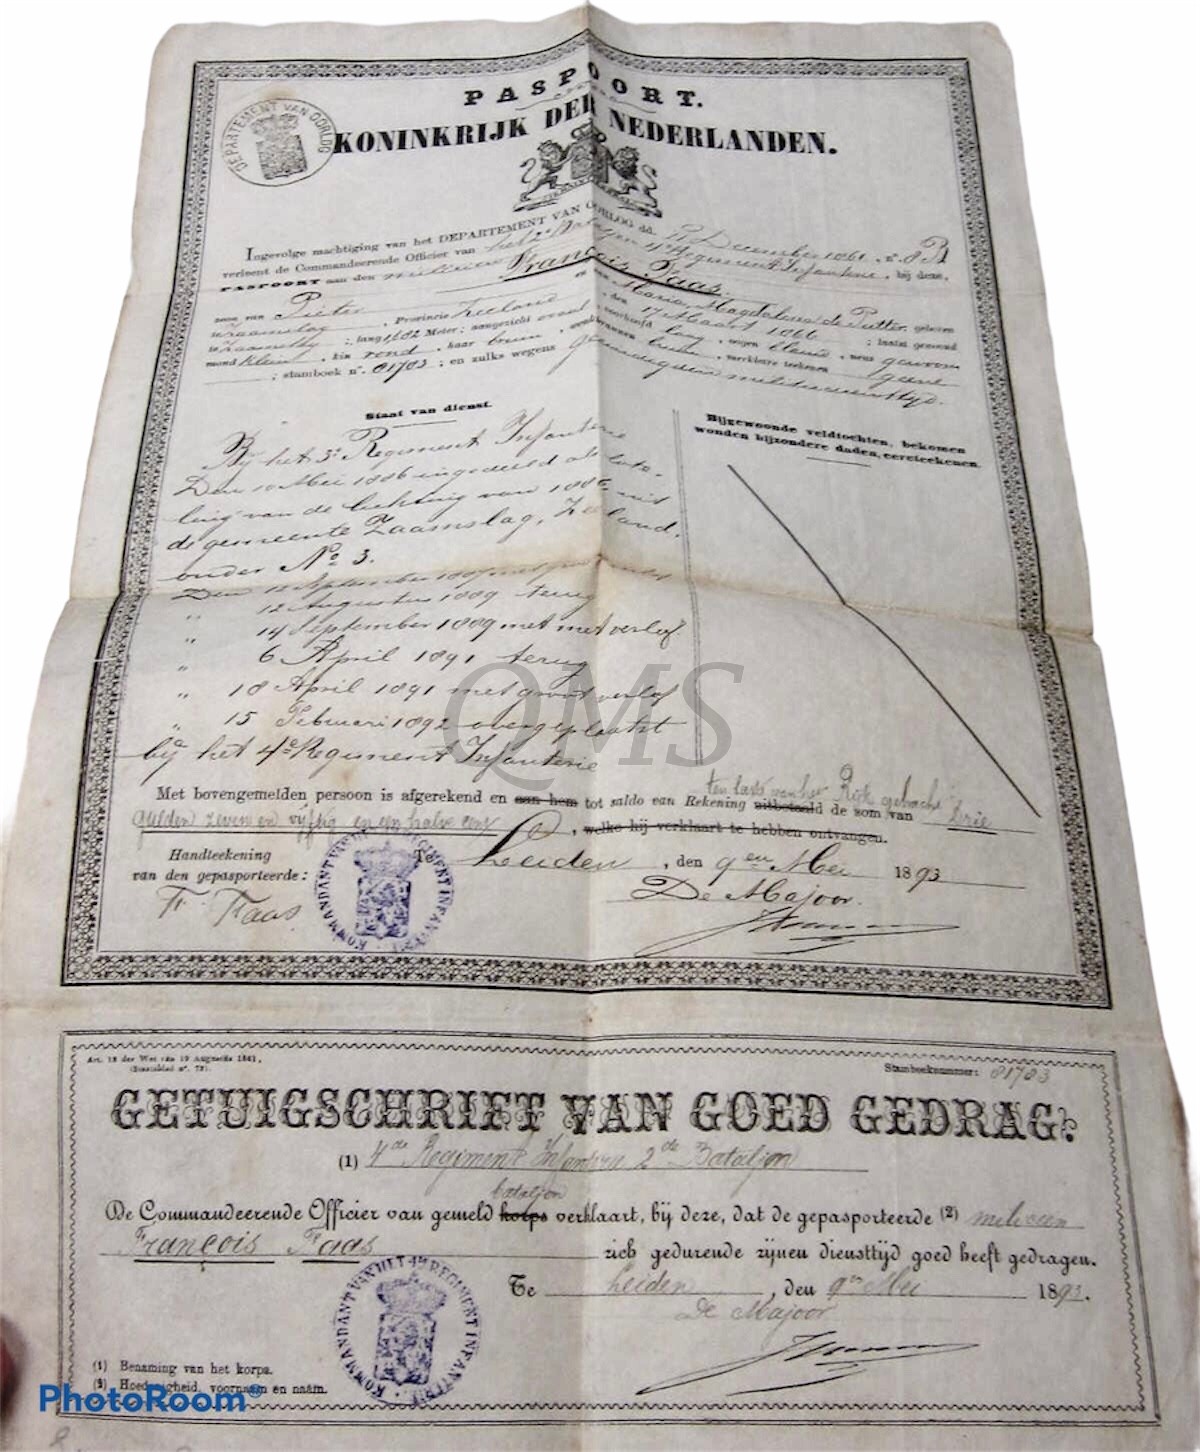 PASPOORT.
KONINKRIJK DER NEDERLANDEN.
DEPARTEMENT VAN OORLOG
Ingevolge machtiging van het DEPARTEMENT VAN OORLOG dd. December 1861 n°. 8B
verleent de Commandeerende Officier van het 2e Bataljon 4e Regiment Infanterie, bij deze,
PASPOORT aan den milicien François Faas
zoon van Pieter en van Maria Magdalena de Putter, geboren
te Zaamslag, Provincie Zeeland, den 17 Maart 1866; laatst gewoond
te Zaamslag; lang 1,602 Meter; aangezicht ovaal, voorhoofd hoog, oogen blauw, neus gewoon
mond klein, kin rond, haar bruin, wenkbrauwen bruin, merkbare teekenen geene
; stamboek n°. 81783; en zulks wegens geëindigden militiediensttijd.
Staat van dienst.
Bij het 3e Regiment Infanterie
Den 10 Mei 1886 ingedeeld als lote-
ling van de lichting van 1886 uit
de gemeente Zaamslag, Zeeland,
onder No 3.
Den 12 September 1887 met groot verlof
" 12 Augustus 1889 terug
" 14 September 1889 met verlof
" 6 April 1891 terug
" 18 April 1891 met groot verlof
" 15 Februari 1892 overgeplaatst
bij het 4e Regiment Infanterie
Bijgewoonde veldtochten, bekomen
wonden bijzondere daden, eereteekenen.
QMS
ten laste van het Rijk gebracht
Met bovengemelden persoon is afgerekend en aan hem tot saldo van Rekening uitbetaald de som van drie
gulden zeven en vijftig en een halve cent, welke hij verklaart te hebben ontvangen.
Handteekening
van den gepasporteerde:
F. Faas
Te Leiden, den 9en Mei 1893
De Majoor.
KOMMANDANT VAN HET 4de REGIMENT INFANTERIE
Art. 18 der Wet van 19 Augustus 1861,
(Staatsblad n°. 72).
Stamboeknummer: 81783
GETUIGSCHRIFT VAN GOED GEDRAG.
(1) 4de Regiment Infanterie 2de Bataljon
bataljon
De Commandeerende Officier van gemeld korps verklaart, bij deze, dat de gepasporteerde (2) milicien
François Faas zich gedurende zijnen diensttijd goed heeft gedragen.
Te Leiden, den 9en Mei 1893.
De Majoor
KOMMANDANT VAN HET 4de REGIMENT INFANTERIE
(1) Benaming van het korps.
(2) Hoedanigheid, voornaam en naam.
PhotoRoom